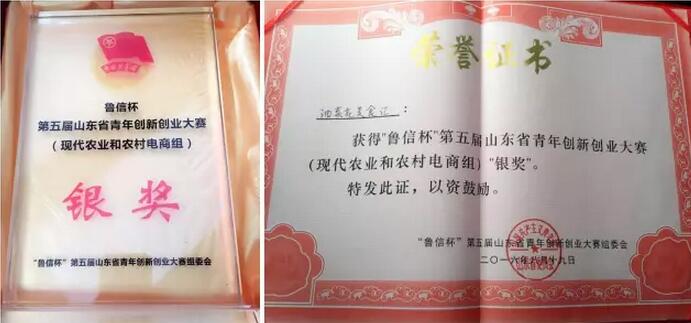 鲁信杯
第五届山东省青年创新创业大赛
（现代农业和农村电商组）
银奖
“鲁信杯”第五届山东省青年创新创业大赛组委会
荣誉证书
美食记：
获得"鲁信杯"第五届山东省青年创新创业大赛
（现代农业和农村电商组）"银奖"。
特发此证，以资鼓励。
“鲁信杯”第五届山东省青年创新创业大赛组委会
二〇一六年六月十九日